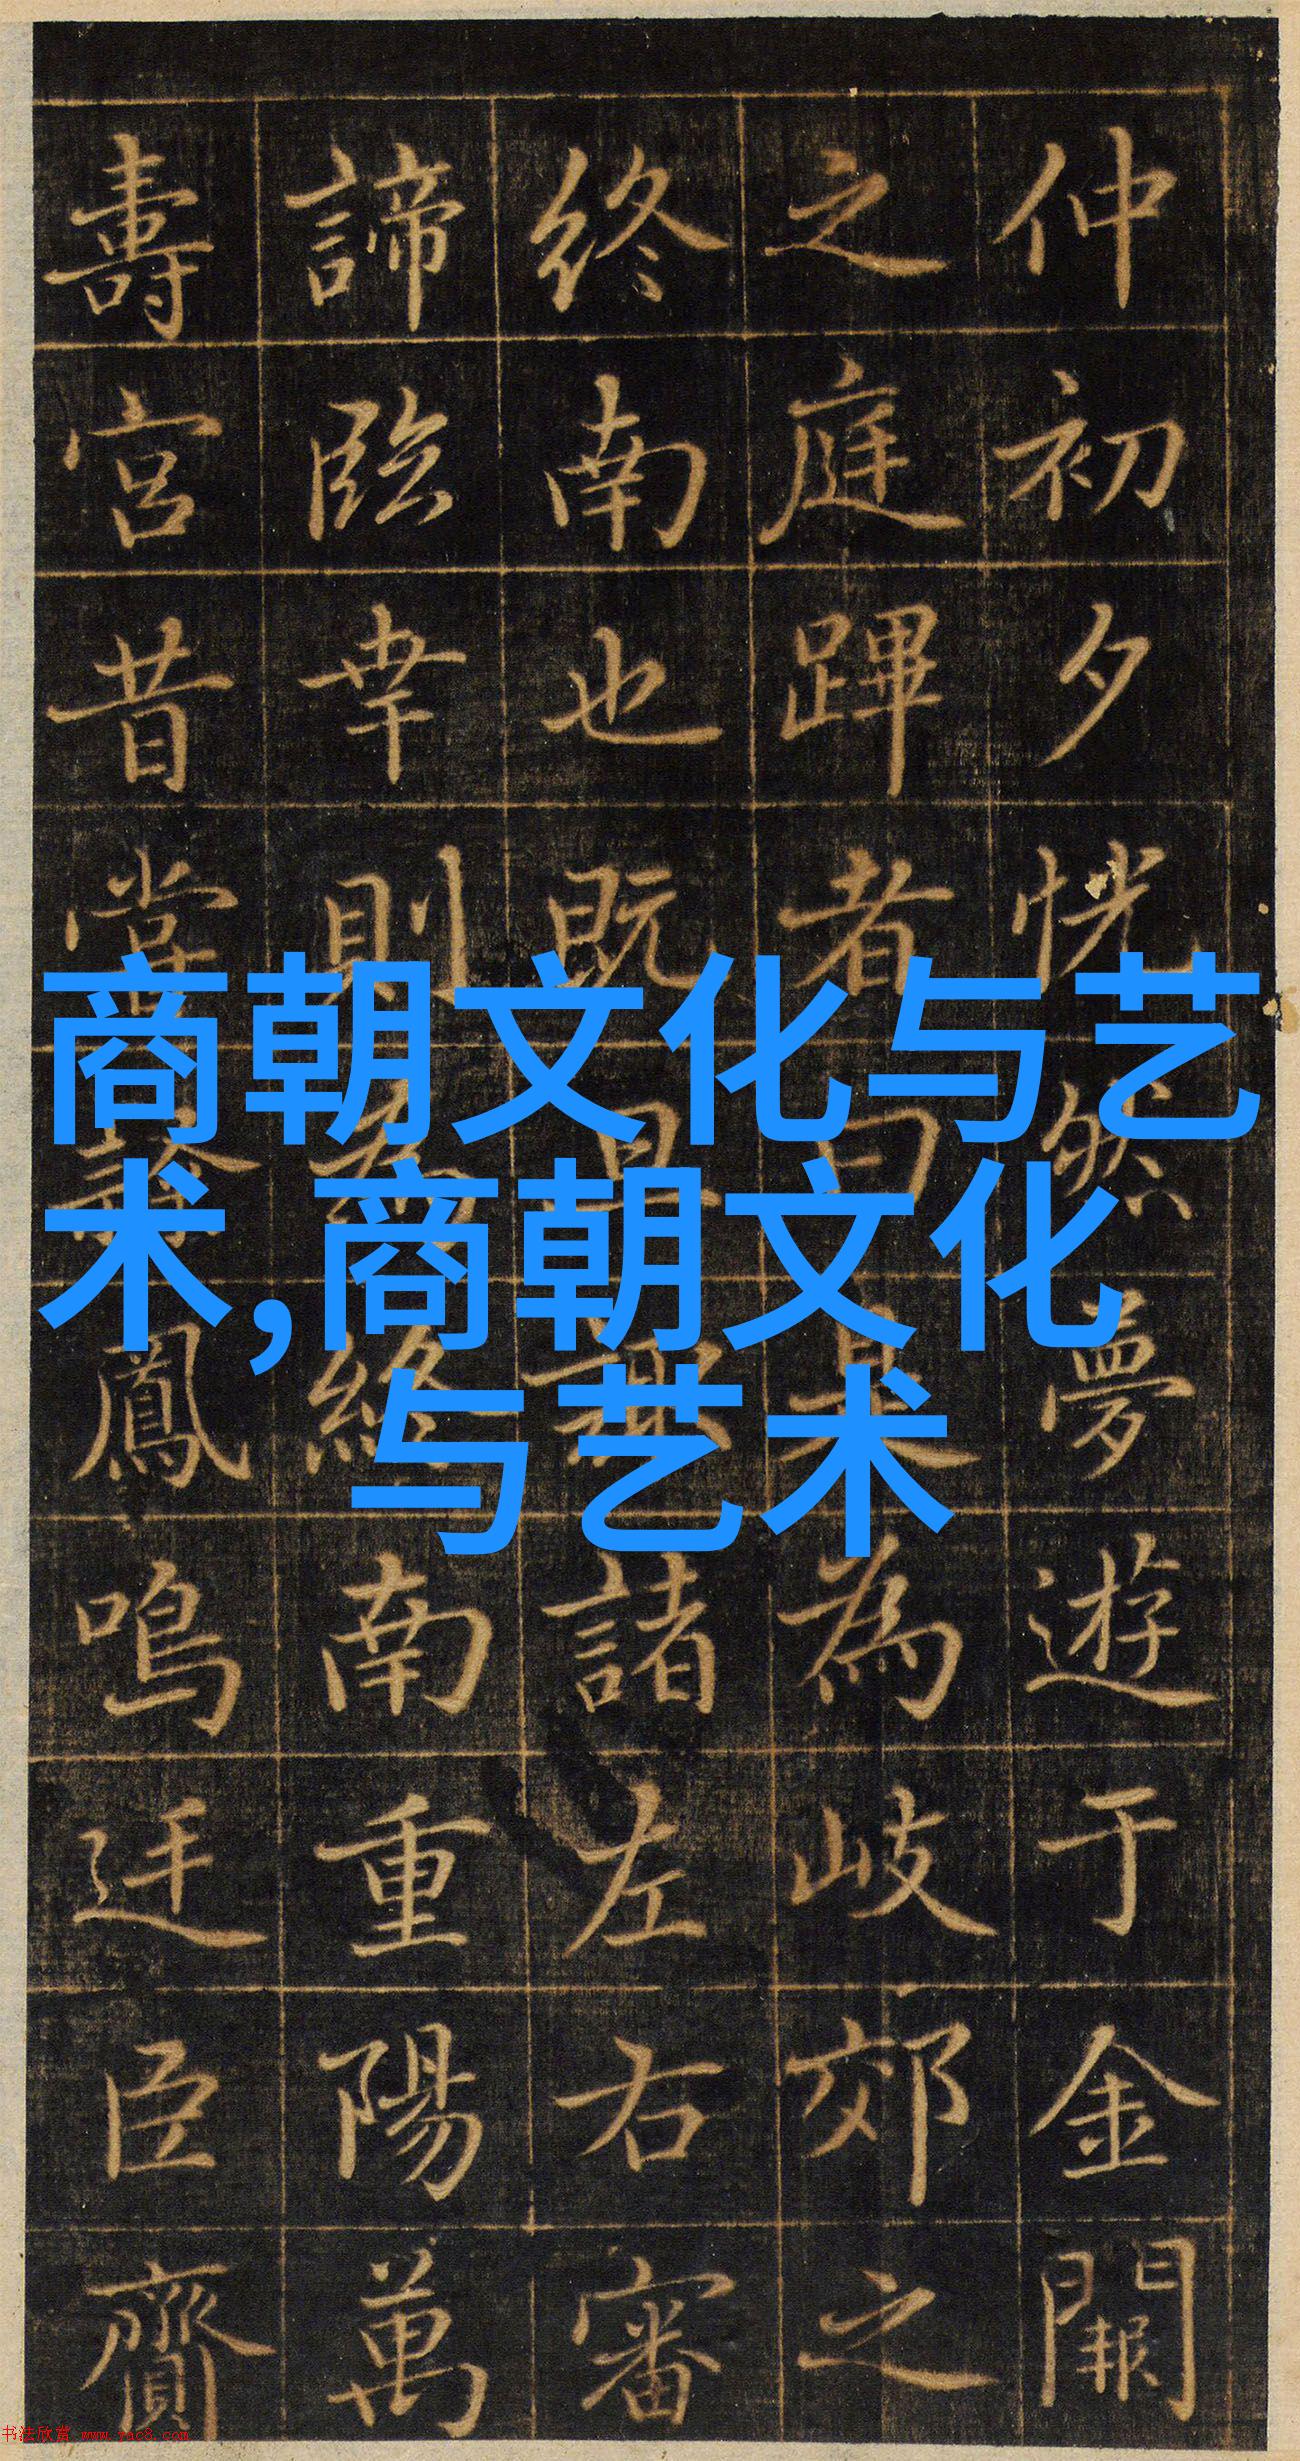 仲初夕恍然夢遊于金闕
之庭蹕者曰是為岐郊之
終南也既旦諸左右審
諦臨幸則為終南重陽萬
壽宮昔嘗鳳鳴臣齎
商朝文化与艺
术,商朝文化
与艺术
书法欣赏 www.yac8.com